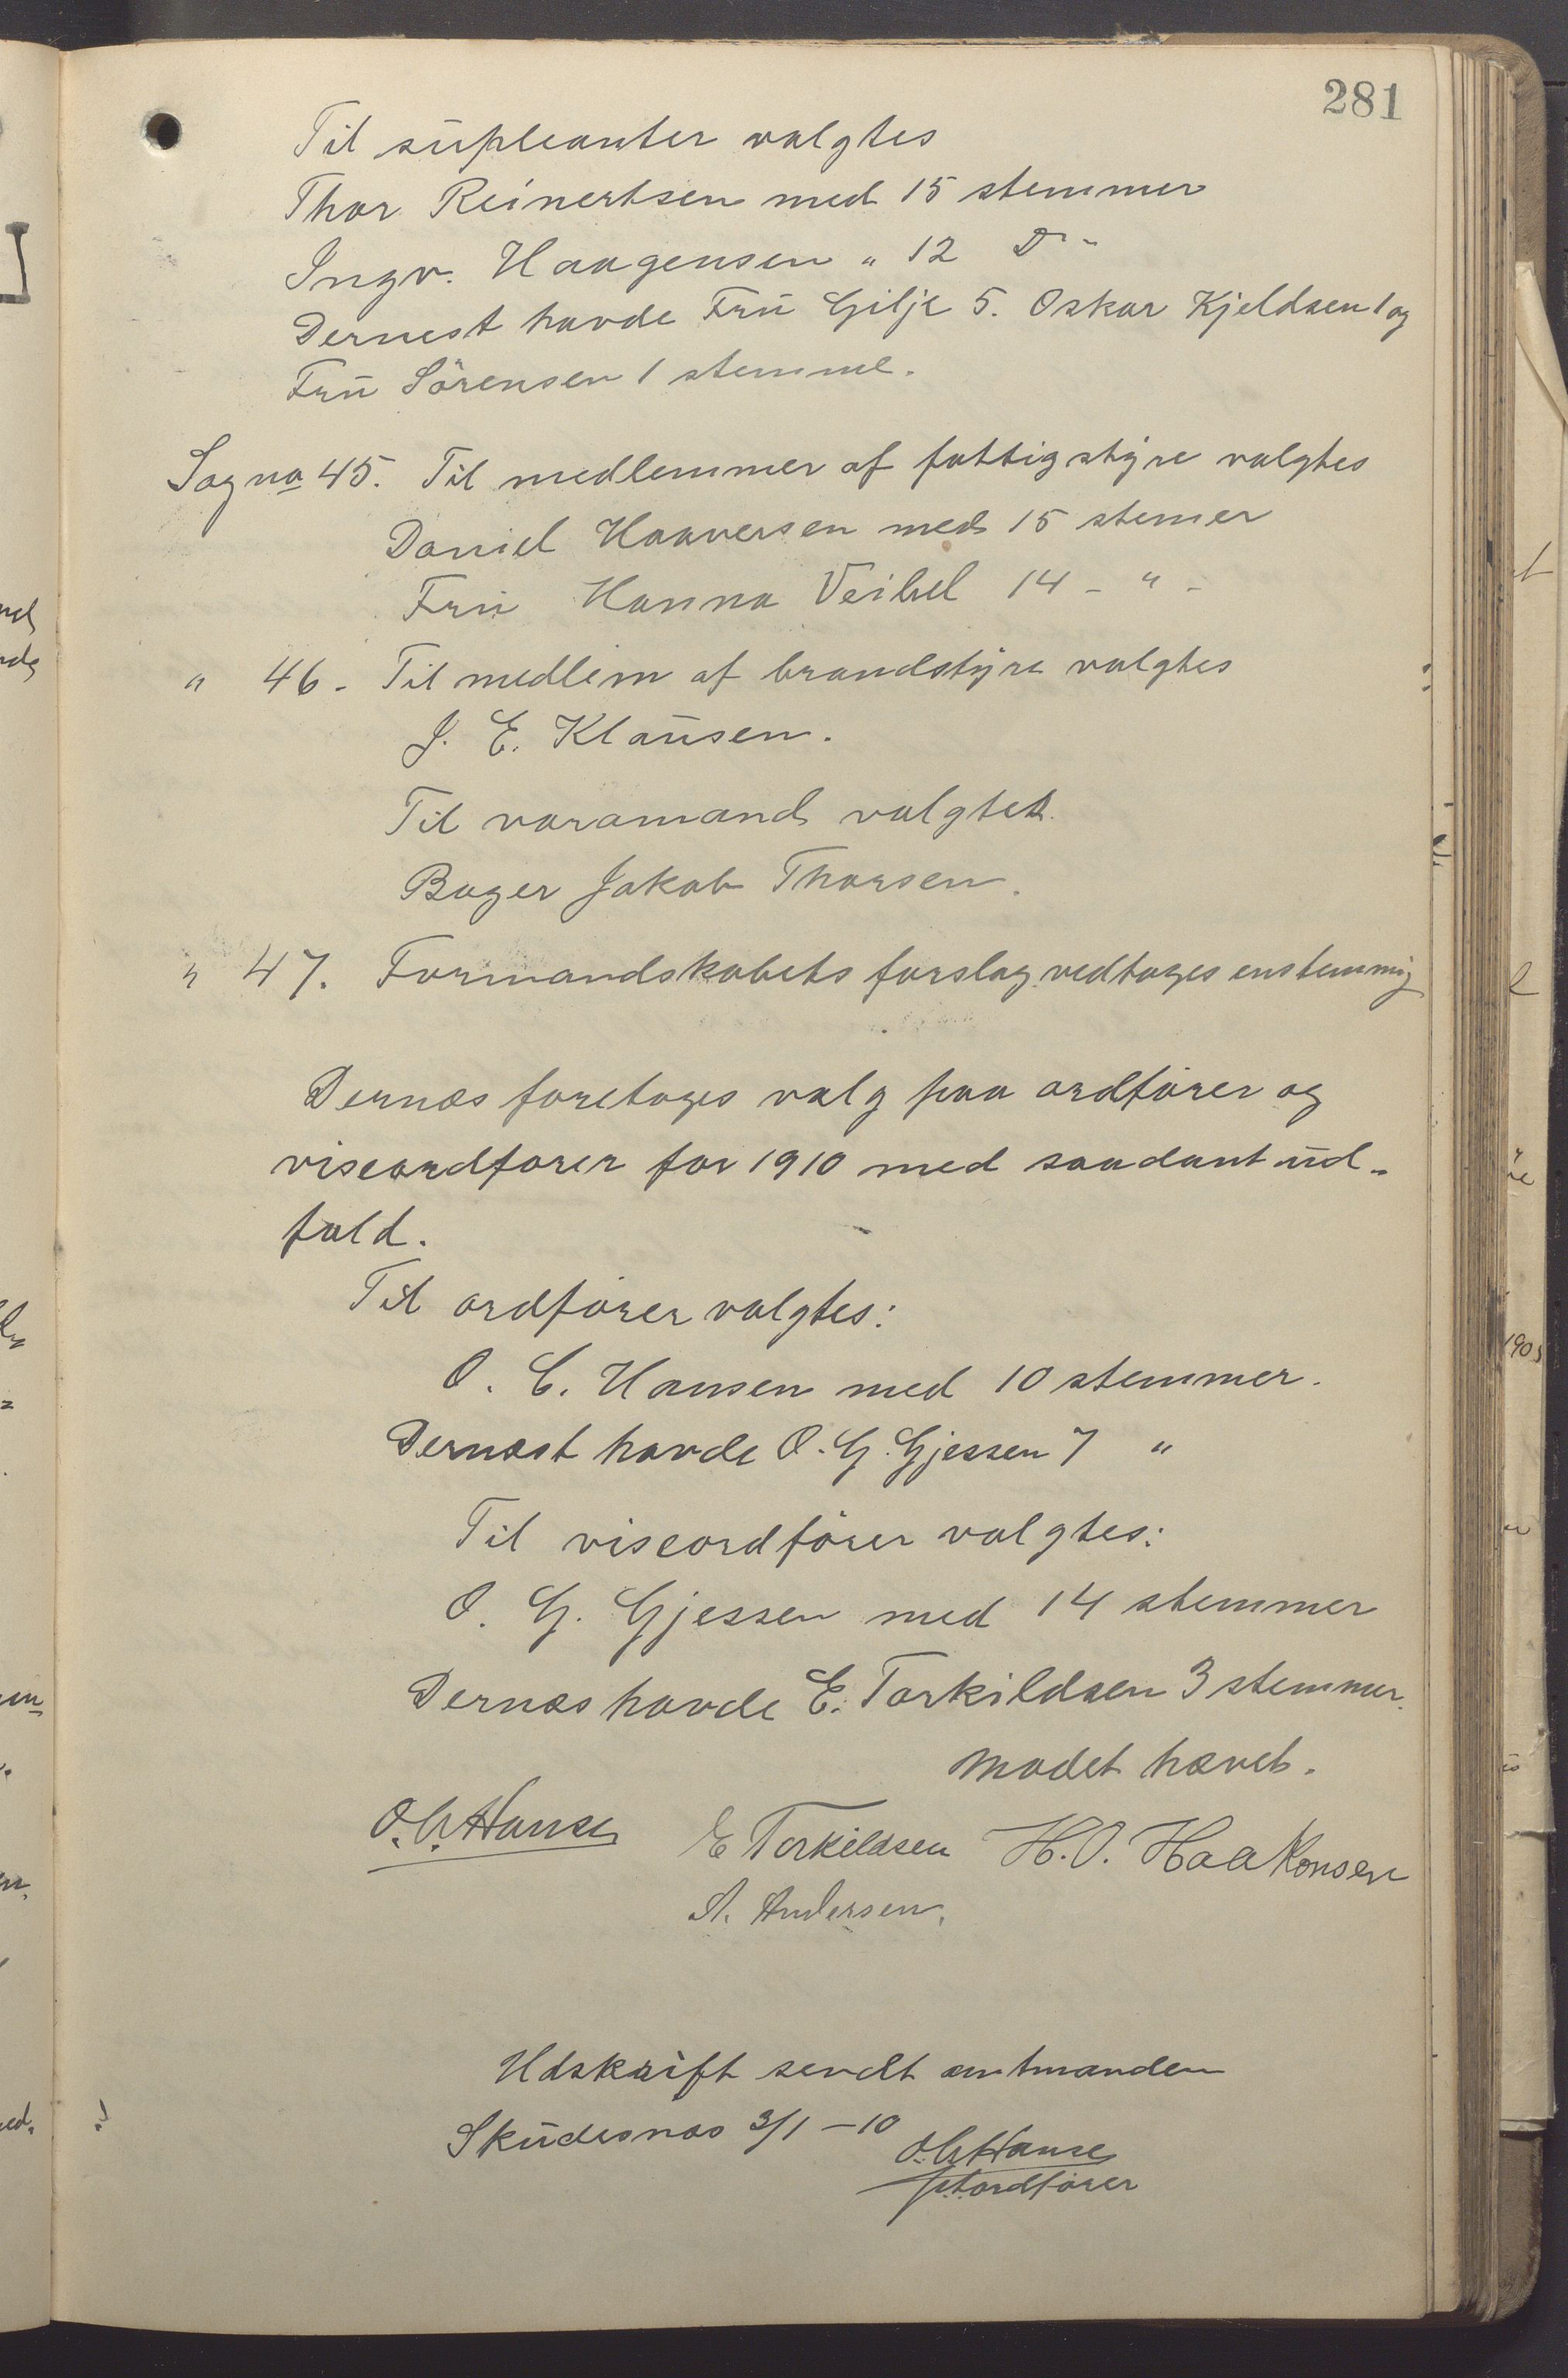 281
Til supleanter valgtes
Thor Reinertsen med 15 stemmer
Ingv. Haagensen " 12 Do "
Dernest havde Fru Gilje 5. Oskar Kjeldsen 1 og
Fru Sörensen 1 stemme.
Sag no 45. Til medlemmer af fattigstyre valgtes
Daniel Haaversen med 15 stemer
Fru Hanna Veibel 14 - " -
" 46. Til medlem af brandstyre valgtes
J. E. Klausen.
Til varamand valgtes
Bager Jakob Thorsen.
" 47. Formandskabets forslag vedtoges enstemmig
Dernæs foretoges valg paa ordförer og
viseordförer for 1910 med saadant ud-
fald.
Til ordförer valgtes:
O. C. Hansen med 10 stemmer.
Dernæst havde O. G. Gjessen 7 "
Til viseordförer valgtes:
O. G. Gjessen med 14 stemmer
Dernæs havde E. Torkildsen 3 stemmer.
Mödet hævet.
O. C. Hansen E Torkildsen H. O. Haakonsen
A. Andersen.
Udskrift sendt amtmanden
Skudesnæs 3/1 - 10
O. C. Hansen
ordförer